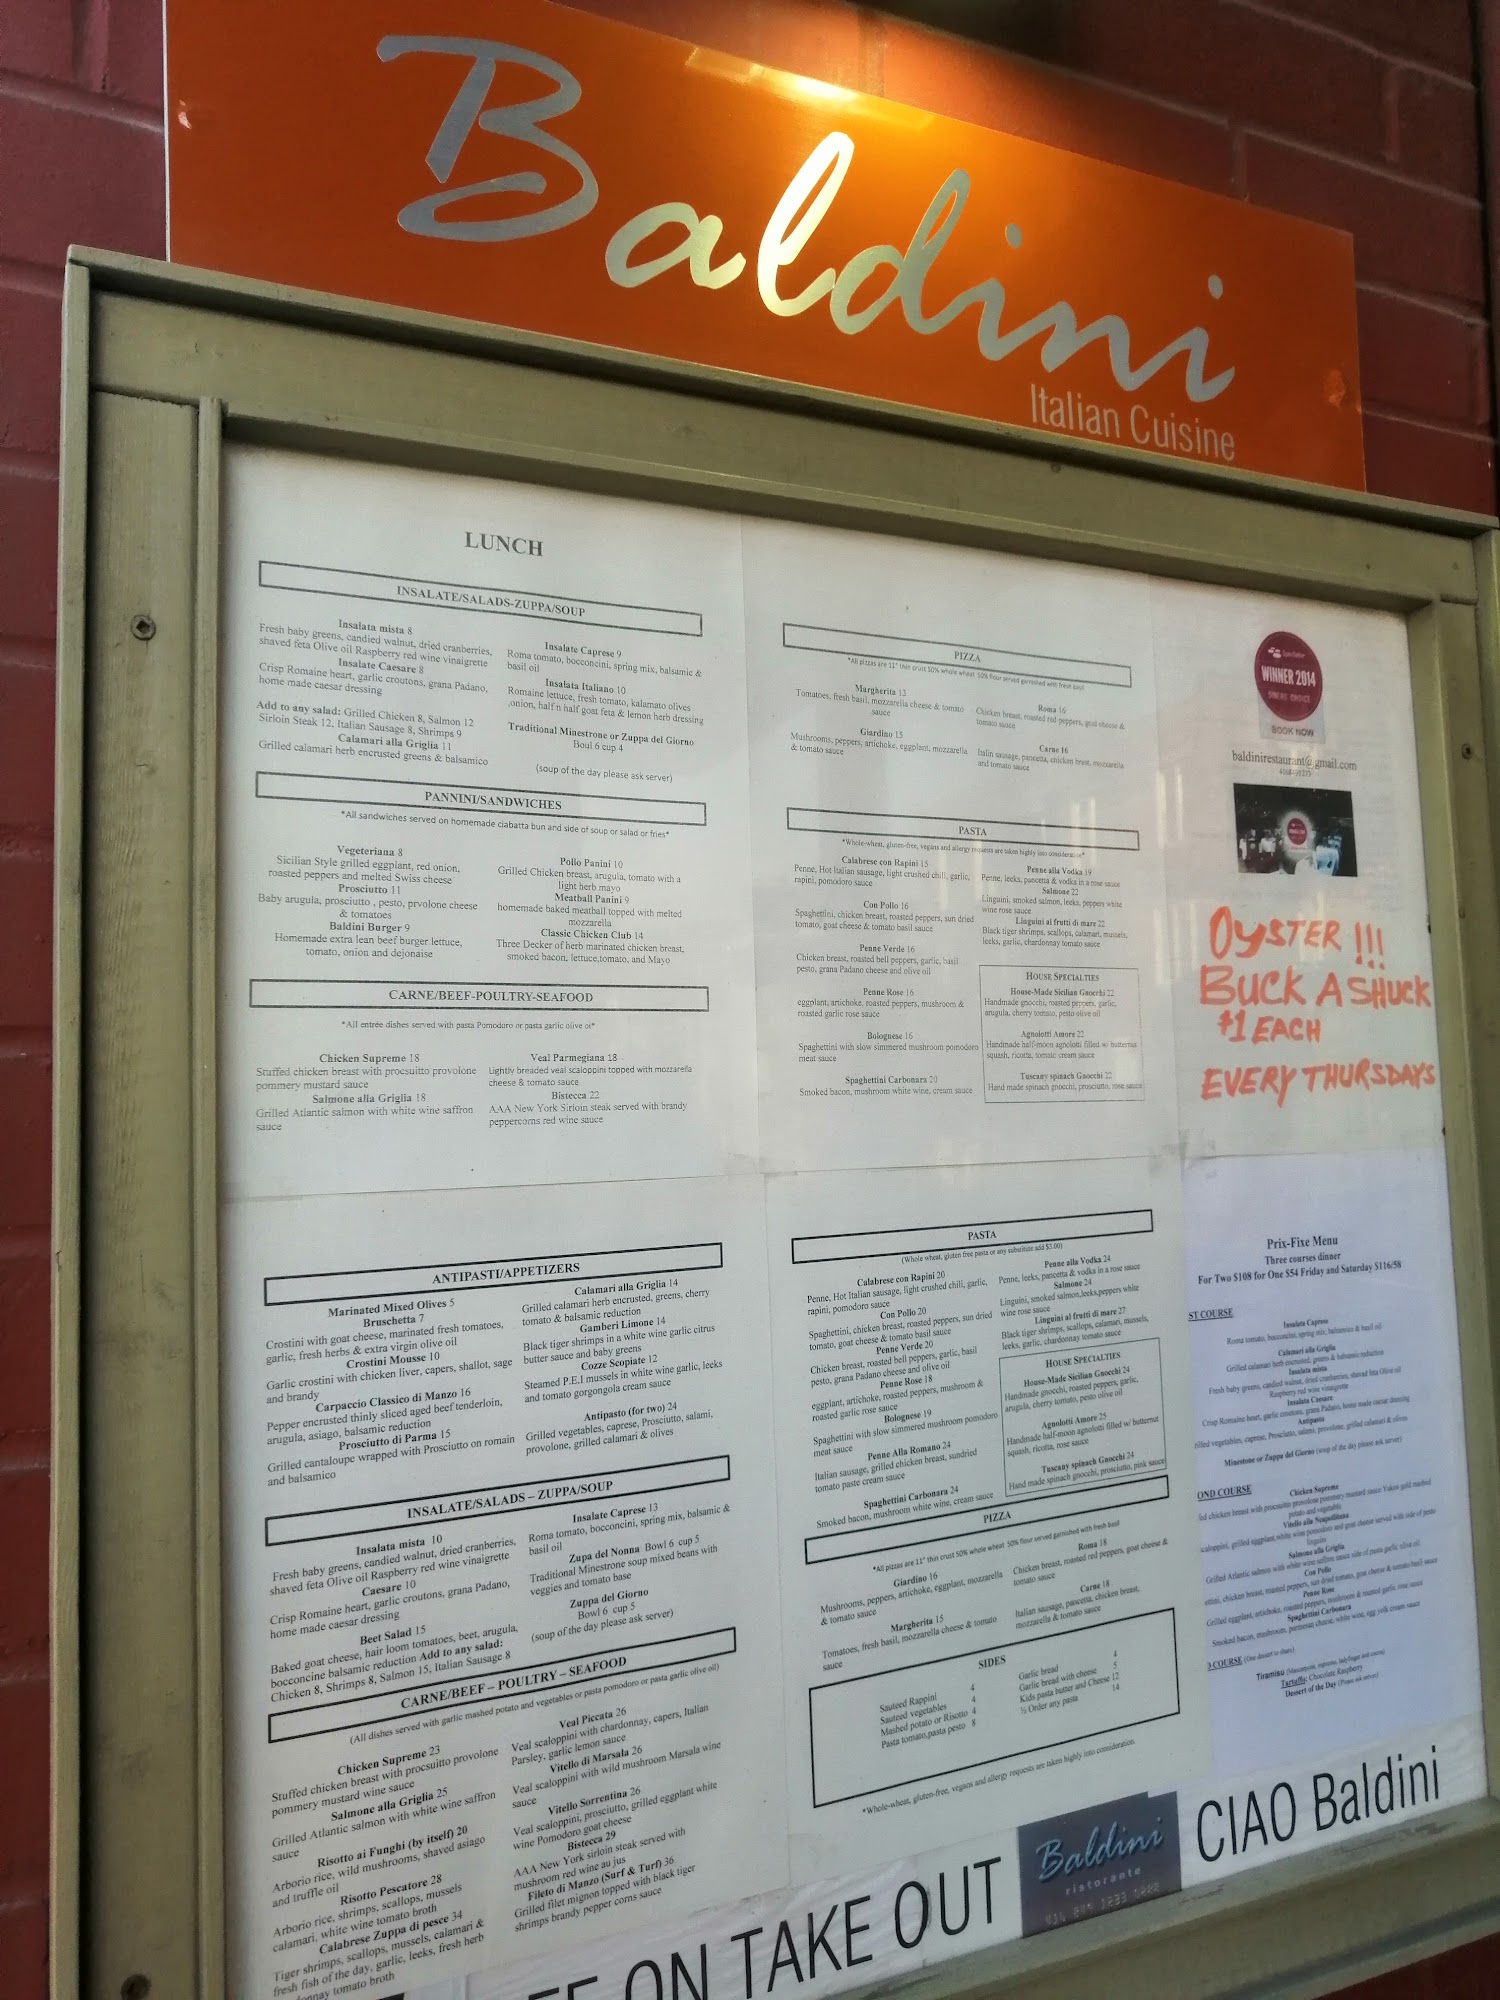 Baldini
Italian Cuisine
LUNCH
INSALATE/SALADS-ZUPPA/SOUP
Insalata mista 8
Fresh baby greens, candied walnut, dried cranberries,
shaved feta Olive oil Raspberry red wine vinaigrette
Insalate Caesare 8
Crisp Romaine heart, garlic croutons, grana Padano,
home made caesar dressing
Add to any salad: Grilled Chicken 8, Salmon 12
Sirloin Steak 12, Italian Sausage 8, Shrimps 9
Calamari alla Griglia 11
Grilled calamari herb encrusted greens & balsamico
Insalate Caprese 9
Roma tomato, bocconcini, spring mix, balsamic &
basil oil
Insalata Italiano 10
Romaine lettuce, fresh tomato, kalamato olives
,onion, half n half goat feta & lemon herb dressing
Traditional Minestrone or Zuppa del Giorno
Boul 6 cup 4
(soup of the day please ask server)
PANNINI/SANDWICHES
*All sandwiches served on homemade ciabatta bun and side of soup or salad or fries*
Vegeteriana 8
Sicilian Style grilled eggplant, red onion,
roasted peppers and melted Swiss cheese
Prosciutto 11
Baby arugula, prosciutto , pesto, prvolone cheese
& tomatoes
Baldini Burger 9
Homemade extra lean beef burger lettuce,
tomato, onion and dejonaise
Pollo Panini 10
Grilled Chicken breast, arugula, tomato with a
light herb mayo
Meatball Panini 9
homemade baked meatball topped with melted
mozzarella
Classic Chicken Club 14
Three Decker of herb marinated chicken breast,
smoked bacon, lettuce,tomato, and Mayo
CARNE/BEEF-POULTRY-SEAFOOD
*All entrée dishes served with pasta Pomodoro or pasta garlic olive oi*
Chicken Supreme 18
Stuffed chicken breast with procsuitto provolone
pommery mustard sauce
Salmone alla Griglia 18
Grilled Atlantic salmon with white wine saffron
sauce
Veal Parmegiana 18
Lightly breaded veal scaloppini topped with mozzarella
cheese & tomato sauce
Bistecca 22
AAA New York Sirloin steak served with brandy
peppercorns red wine sauce
PIZZA
*All pizzas are 11" thin crust 50% whole wheat 50% flour served garnished with fresh basil
Margherita 13
Tomatoes, fresh basil, mozzarella cheese & tomato
sauce
Giardino 15
Mushrooms, peppers, artichoke, eggplant, mozzarella
& tomato sauce
Roma 16
Chicken breast, roasted red peppers, goat cheese &
tomato sauce
Carne 16
Italin sausage, pancetta, chicken breast, mozzarella
and tomato sauce
PASTA
*Whole-wheat, gluten-free, vegans and allergy requests are taken highly into consideration*
Calabrese con Rapini 15
Penne, Hot Italian sausage, light crushed chili, garlic,
rapini, pomodoro sauce
Con Pollo 16
Spaghettini, chicken breast, roasted peppers, sun dried
tomato, goat cheese & tomato basil sauce
Penne Verde 16
Chicken breast, roasted bell peppers, garlic, basil
pesto, grana Padano cheese and olive oil
Penne Rose 16
eggplant, artichoke, roasted peppers, mushroom &
roasted garlic rose sauce
Bolognese 16
Spaghettini with slow simmered mushroom pomodoro
meat sauce
Spaghettini Carbonara 20
Smoked bacon, mushroom white wine, cream sauce
Penne alla Vodka 19
Penne, leeks, pancetta & vodka in a rose sauce
Salmone 22
Linguini, smoked salmon, leeks, peppers white
wine rose sauce
Linguini al frutti di mare 22
Black tiger shrimps, scallops, calamari, mussels,
leeks, garlic, chardonnay tomato sauce
HOUSE SPECIALTIES
House-Made Sicilian Gnocchi 22
Handmade gnocchi, roasted peppers, garlic,
arugula, cherry tomato, pesto olive oil
Agnolotti Amore 22
Handmade half-moon agnolotti filled w/ butternut
squash, ricotta, tomato cream sauce
Tuscany spinach Gnocchi 22
Hand made spinach gnocchi, prosciutto, rose sauce
WINNER 2014
DINERS' CHOICE
BOOK NOW
baldinirestaurant@gmail.com
OYSTER !!!
BUCK A SHUCK
$1 EACH
EVERY THURSDAYS
ANTIPASTI/APPETIZERS
Marinated Mixed Olives 5
Bruschetta 7
Crostini with goat cheese, marinated fresh tomatoes,
garlic, fresh herbs & extra virgin olive oil
Crostini Mousse 10
Garlic crostini with chicken liver, capers, shallot, sage
and brandy
Carpaccio Classico di Manzo 16
Pepper encrusted thinly sliced aged beef tenderloin,
arugula, asiago, balsamic reduction
Prosciutto di Parma 15
Grilled cantaloupe wrapped with Prosciutto on romain
and balsamico
Calamari alla Griglia 14
Grilled calamari herb encrusted, greens, cherry
tomato & balsamic reduction
Gamberi Limone 14
Black tiger shrimps in a white wine garlic citrus
butter sauce and baby greens
Cozze Scopiate 12
Steamed P.E.I mussels in white wine garlic, leeks
and tomato gorgongola cream sauce
Antipasto (for two) 24
Grilled vegetables, caprese, Prosciutto, salami,
provolone, grilled calamari & olives
INSALATE/SALADS – ZUPPA/SOUP
Insalata mista 10
Fresh baby greens, candied walnut, dried cranberries,
shaved feta Olive oil Raspberry red wine vinaigrette
Caesare 10
Crisp Romaine heart, garlic croutons, grana Padano,
home made caesar dressing
Beet Salad 15
Baked goat cheese, hair loom tomatoes, beet, arugula,
bocconcine balsamic reduction Add to any salad:
Chicken 8, Shrimps 8, Salmon 15, Italian Sausage 8
Insalate Caprese 13
Roma tomato, bocconcini, spring mix, balsamic &
basil oil
Zupa del Nonna Bowl 6 cup 5
Traditional Minestrone soup mixed beans with
veggies and tomato base
Zuppa del Giorno
Bowl 6 cup 5
(soup of the day please ask server)
CARNE/BEEF – POULTRY – SEAFOOD
(All dishes served with garlic mashed potato and vegetables or pasta pomodoro or pasta garlic olive oil)
Chicken Supreme 23
Stuffed chicken breast with procsuitto provolone
pommery mustard wine sauce
Salmone alla Griglia 25
Grilled Atlantic salmon with white wine saffron
sauce
Risotto ai Funghi (by itself) 20
Arborio rice, wild mushrooms, shaved asiago
and truffle oil
Risotto Pescatore 28
Arborio rice, shrimps, scallops, mussels
calamari, white wine tomato broth
Calabrese Zuppa di pesce 34
Tiger shrimps, scallops, mussels, calamari &
fresh fish of the day, garlic, leeks, fresh herb
donnay tomato broth
Veal Piccata 26
Veal scaloppini with chardonnay, capers, Italian
Parsley, garlic lemon sauce
Vitello di Marsala 26
Veal scaloppini with wild mushroom Marsala wine
sauce
Vitello Sorrentina 26
Veal scaloppini, prosciutto, grilled eggplant white
wine Pomodoro goat cheese
Bistecca 29
AAA New York sirloin steak served with
mushroom red wine au jus
Fileto di Manzo (Surf & Turf) 36
Grilled filet mignon topped with black tiger
shrimps brandy pepper corns sauce
PASTA
(Whole wheat, gluten free pasta or any substitute add $3.00)
Calabrese con Rapini 20
Penne, Hot Italian sausage, light crushed chili, garlic,
rapini, pomodoro sauce
Con Pollo 20
Spaghettini, chicken breast, roasted peppers, sun dried
tomato, goat cheese & tomato basil sauce
Penne Verde 20
Chicken breast, roasted bell peppers, garlic, basil
pesto, grana Padano cheese and olive oil
Penne Rose 18
eggplant, artichoke, roasted peppers, mushroom &
roasted garlic rose sauce
Bolognese 19
Spaghettini with slow simmered mushroom pomodoro
meat sauce
Penne Alla Romano 24
Italian sausage, grilled chicken breast, sundried
tomato paste cream sauce
Spaghettini Carbonara 24
Smoked bacon, mushroom white wine, cream sauce
Penne alla Vodka 24
Penne, leeks, pancetta & vodka in a rose sauce
Salmone 24
Linguini, smoked salmon,leeks,peppers white
wine rose sauce
Linguini al frutti di mare 27
Black tiger shrimps, scallops, calamari, mussels,
leeks, garlic, chardonnay tomato sauce
HOUSE SPECIALTIES
House-Made Sicilian Gnocchi 24
Handmade gnocchi, roasted peppers, garlic,
arugula, cherry tomato, pesto olive oil
Agnolotti Amore 25
Handmade half-moon agnolotti filled w/ butternut
squash, ricotta, rose sauce
Tuscany spinach Gnocchi 24
Hand made spinach gnocchi, prosciutto, pink sauce
PIZZA
*All pizzas are 11" thin crust 50% whole wheat 50% flour served garnished with fresh basil
Giardino 16
Mushrooms, peppers, artichoke, eggplant, mozzarella
& tomato sauce
Margherita 15
Tomatoes, fresh basil, mozzarella cheese & tomato
sauce
Roma 18
Chicken breast, roasted red peppers, goat cheese &
tomato sauce
Carne 18
Italian sausage, pancetta, chicken breast,
mozzarella & tomato sauce
SIDES
Sauteed Rappini 4
Sauteed vegetables 4
Mashed potato or Risotto 4
Pasta tomato,pasta pesto 8
Garlic bread 4
Garlic bread with cheese 5
Kids pasta butter and Cheese 12
½ Order any pasta 14
*Whole-wheat, gluten-free, vegans and allergy requests are taken highly into consideration
Prix-Fixe Menu
Three courses dinner
For Two $108 for One $54 Friday and Saturday $116/58
ST COURSE
Insalata Caprese
Roma tomato, bocconcini, spring mix, balsamico & basil oil
Calamari alla Griglia
Grilled calamari herb encrusted, greens & balsamic reduction
Insalata mista
Fresh baby greens, candied walnut, dried cranberries, shaved feta Olive oil
Raspberry red wine vinaigrette
Insalata Caesare
Crisp Romaine heart, garlic croutons, grana Padano, home made caesar dressing
Antipasto
rilled vegetables, caprese, Prosciutto, salami, provolone, grilled calamari & olives
Minestone or Zuppa del Giorno (soup of the day please ask server)
OND COURSE
Chicken Supreme
ed chicken breast with procsuitto provolone pommery mustard sauce Yukon gold mashed
potato and vegetable
Vitello alla Neapolitana
scaloppini, grilled eggplant,white wine pomodoro and goat cheese served with side of pesto
linguini
Salmone alla Griglia
Grilled Atlantic salmon with white wine saffron sauce side of pasta garlic olive oil
Con Pollo
ettini, chicken breast, roasted peppers, sun dried tomato, goat cheese & tomato basil sauce
Penne Rose
Grilled eggplant, artichoke, roasted peppers, mushroom & roasted garlic rose sauce
Spaghettini Carbonara
Smoked bacon, mushroom, parmesan cheese, white wine, egg yolk cream sauce
D COURSE (One dessert to share)
Tiramisu
Tartuffo: Chocolate Raspberry
Dessert of the Day (Please ask server)
ON TAKE OUT
Baldini
ristorante
CIAO Baldini